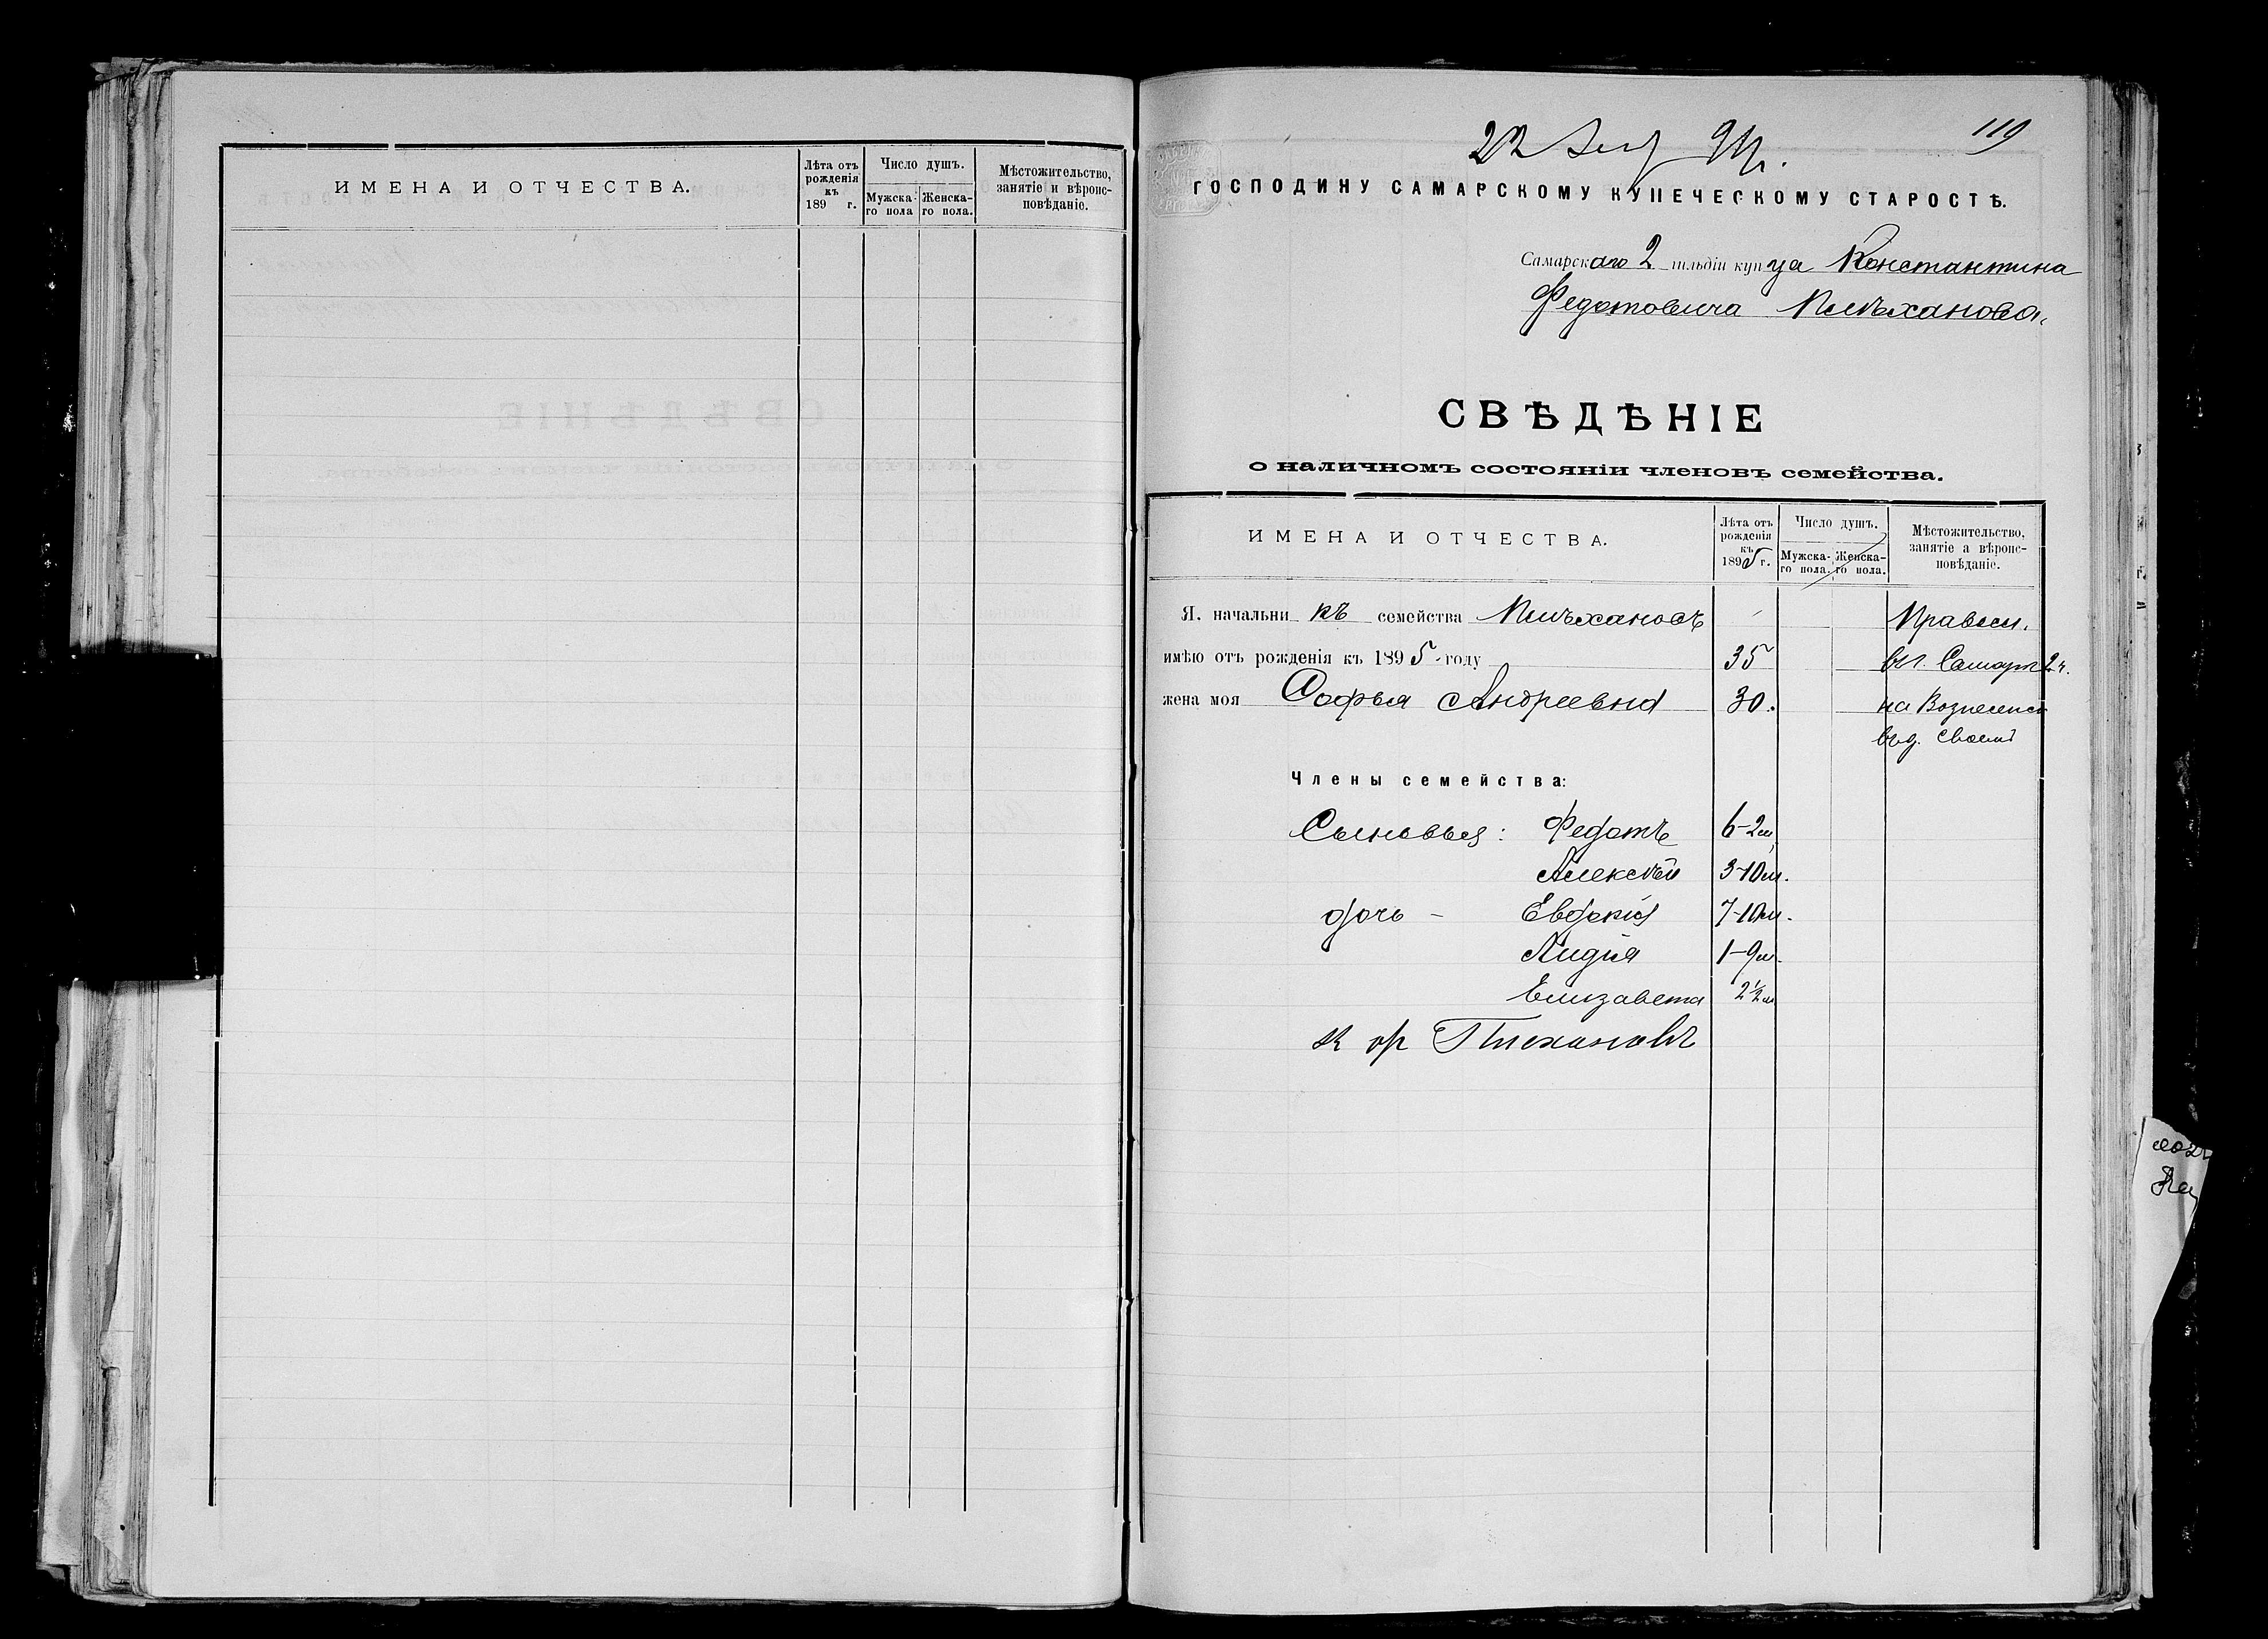 ИМЕНА И ОТЧЕСТВА.
Лѣта отъ рожденія къ 189 г.
Число душъ.
Мужска-го пола
Женска-го пола.
Мѣстожительство, занятіе и вѣроис-повѣданіе.
119
22
ГОСПОДИНУ САМАРСКОМУ КУПЕЧЕСКОМУ СТАРОСТѢ.
Самарскаго 2 гильдіи купца Константина
Федотовича Плѣханова.
СВѢДѢНІЕ
о наличномъ состояніи членовъ семейства.
ИМЕНА И ОТЧЕСТВА.
Лѣта отъ рожденія къ 1895 г.
Число душъ.
Мужска-го пола.
Женска-го пола.
Мѣстожительство, занятіе а вѣроис-повѣданіе.
Я. начальникъ семейства Плѣхановъ Правосл.
имѣю отъ рожденія къ 1895 году 35 въ г. Самарѣ 2 ч.
жена моя Софья Андреевна 30. на Вознесенск
въ д. своемъ
Члены семейства:
Сыновья: Федотъ 6-2м
Алексѣй 3-10м.
дочь - Евдокія 7-10м.
Лидія 1-9м.
Елизавета 2½м
К Ф Плехановъ